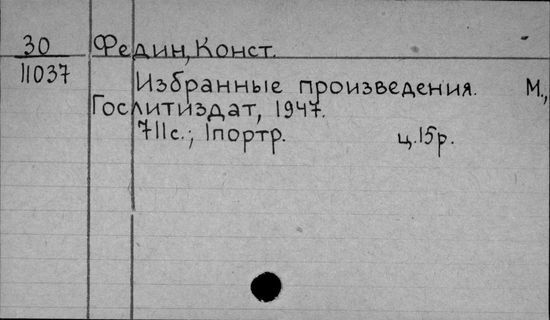 30 Федин, Конст.
11037
Избранные произведения. М.,
Гослитиздат, 1947.
711с.; 1портр. ц.15р.